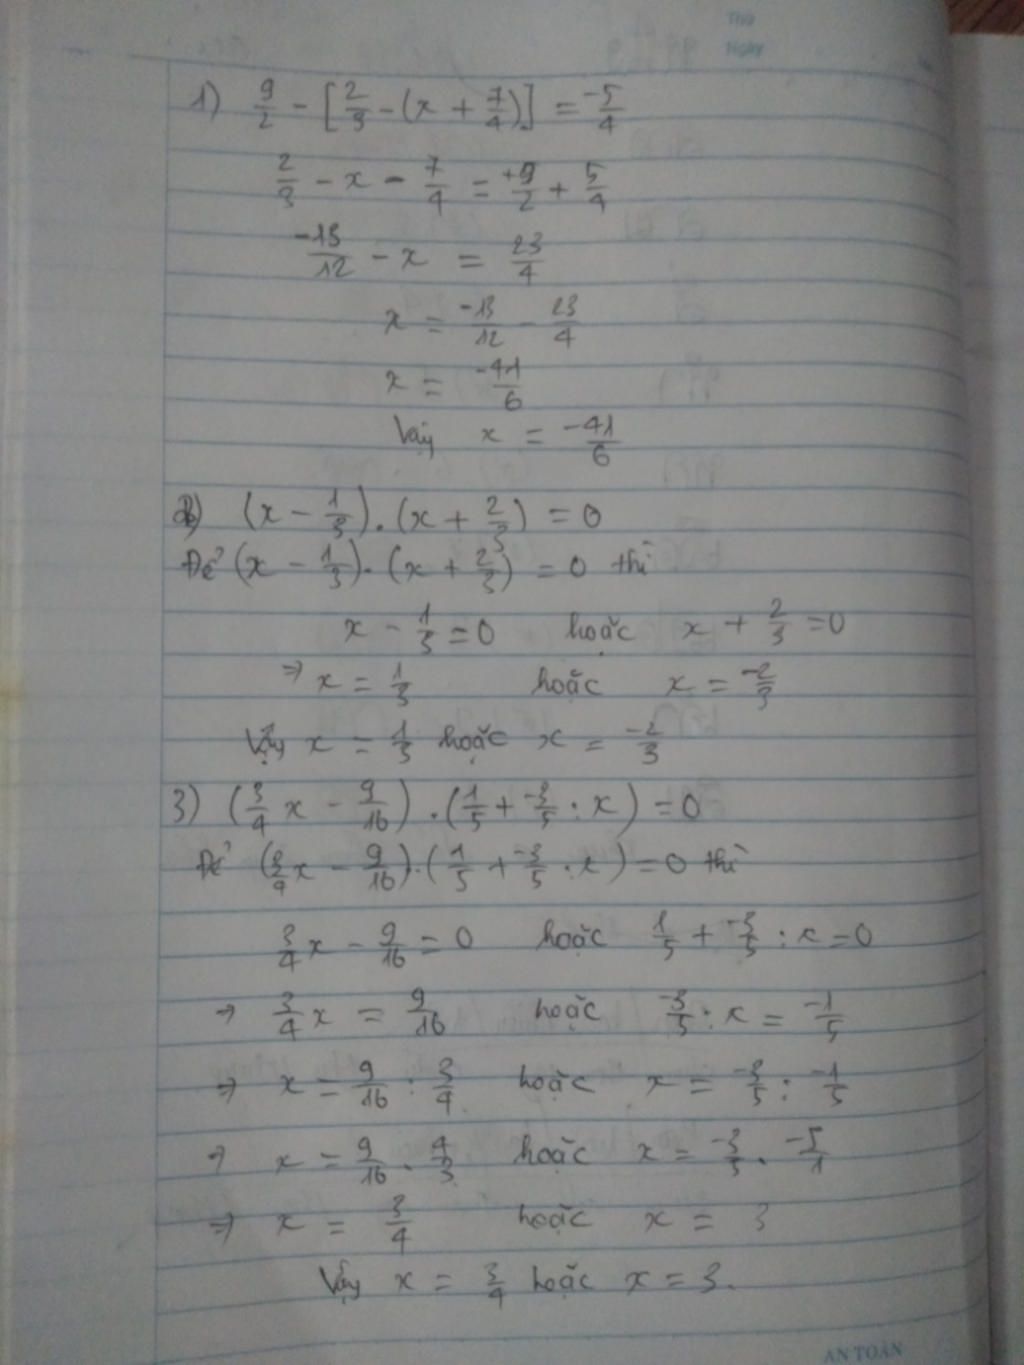 Thứ
Ngày
1) 9/2 - [2/3 - (x + 7/4)] = -5/4
2/3 - x - 7/4 = +9/2 + 5/4
-13/12 - x = 23/4
x = -13/12 - 23/4
x = -41/6
Vậy x = -41/6
2) (x - 1/3).(x + 2/3) = 0
Để (x - 1/3).(x + 2/3) = 0 thì
x - 1/3 = 0 hoặc x + 2/3 = 0
→ x = 1/3 hoặc x = -2/3
Vậy x = 1/3 hoặc x = -2/3
3) (3/4 x - 9/16).(1/5 + -3/5 : x) = 0
Để (3/4 x - 9/16).(1/5 + -3/5 : x) = 0 thì
3/4 x - 9/16 = 0 hoặc 1/5 + -3/5 : x = 0
→ 3/4 x = 9/16 hoặc -3/5 : x = -1/5
→ x = 9/16 : 3/4 hoặc x = -3/5 : -1/5
→ x = 9/16 . 4/3 hoặc x = -3/5 . -5/1
⇒ x = 3/4 hoặc x = 3
Vậy x = 3/4 hoặc x = 3.
AN TOÀN